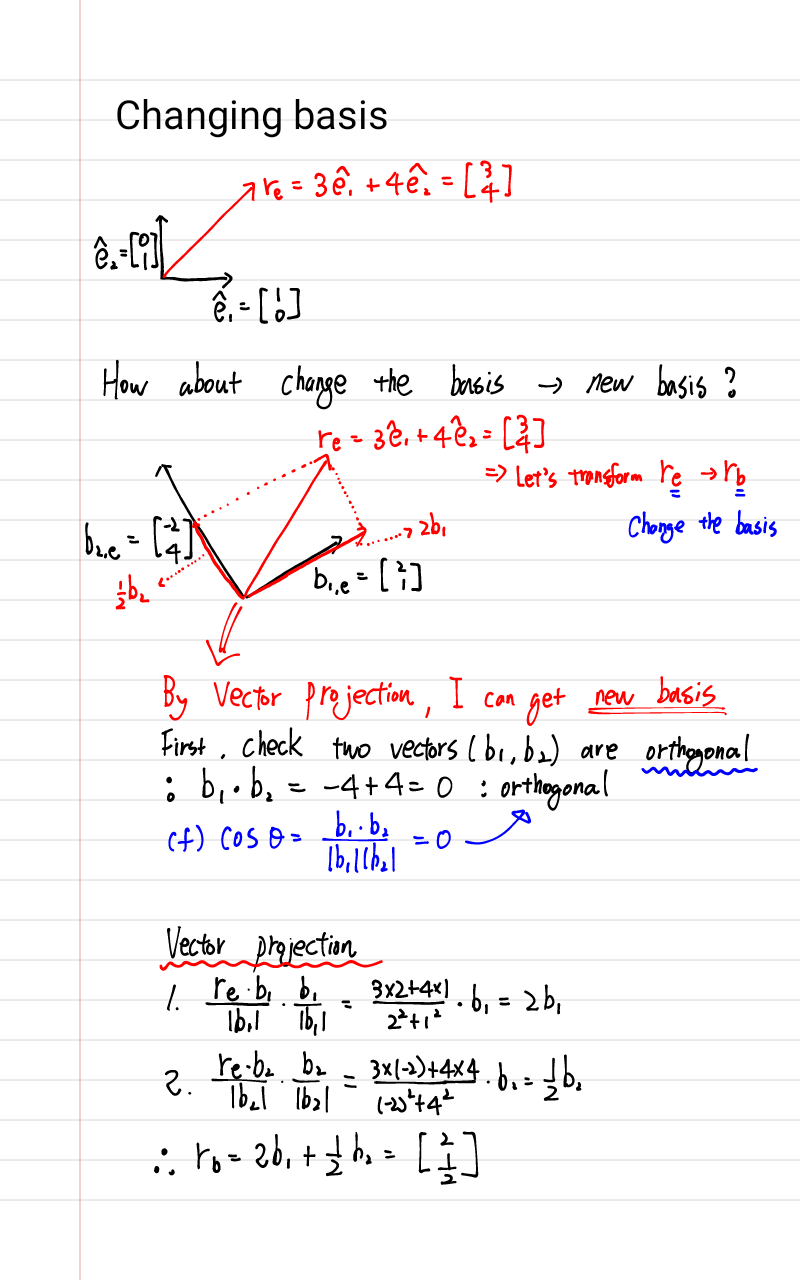 Changing basis
rₑ = 3ê₁ + 4ê₂ = [3 4]
ê₂ = [0 1]
ê₁ = [1 0]
How about change the basis → new basis?
rₑ = 3ê₁ + 4ê₂ = [3 4]
=> Let's transform rₑ → r_b
Change the basis
2b₁
b₂,ₑ = [-2 4]
b₁,ₑ = [2 1]
½b₂
By Vector projection, I can get new basis
First, check two vectors (b₁, b₂) are orthogonal
: b₁ · b₂ = -4+4 = 0 : orthogonal
cf) cos θ = b₁·b₂ / |b₁||b₂| = 0
Vector projection
1. rₑ·b₁/|b₁| · b₁/|b₁| = 3×2+4×1 / 2²+1² · b₁ = 2b₁
2. rₑ·b₂/|b₂| · b₂/|b₂| = 3×(-2)+4×4 / (-2)²+4² · b₂ = ½b₂
∴ r_b = 2b₁ + ½b₂ = [2 ½]